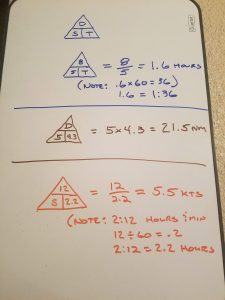 D
S T
8
5 T
= 8/5 = 1.6 HOURS
(NOTE: .6x60=36)
1.6 = 1:36
D
5 4.3
= 5x4.3 = 21.5 nm
12
S 2.2
= 12/2.2 = 5.5 KTS
(NOTE: 2:12 HOURS & min
12÷60 = .2
2:12 = 2.2 HOURS